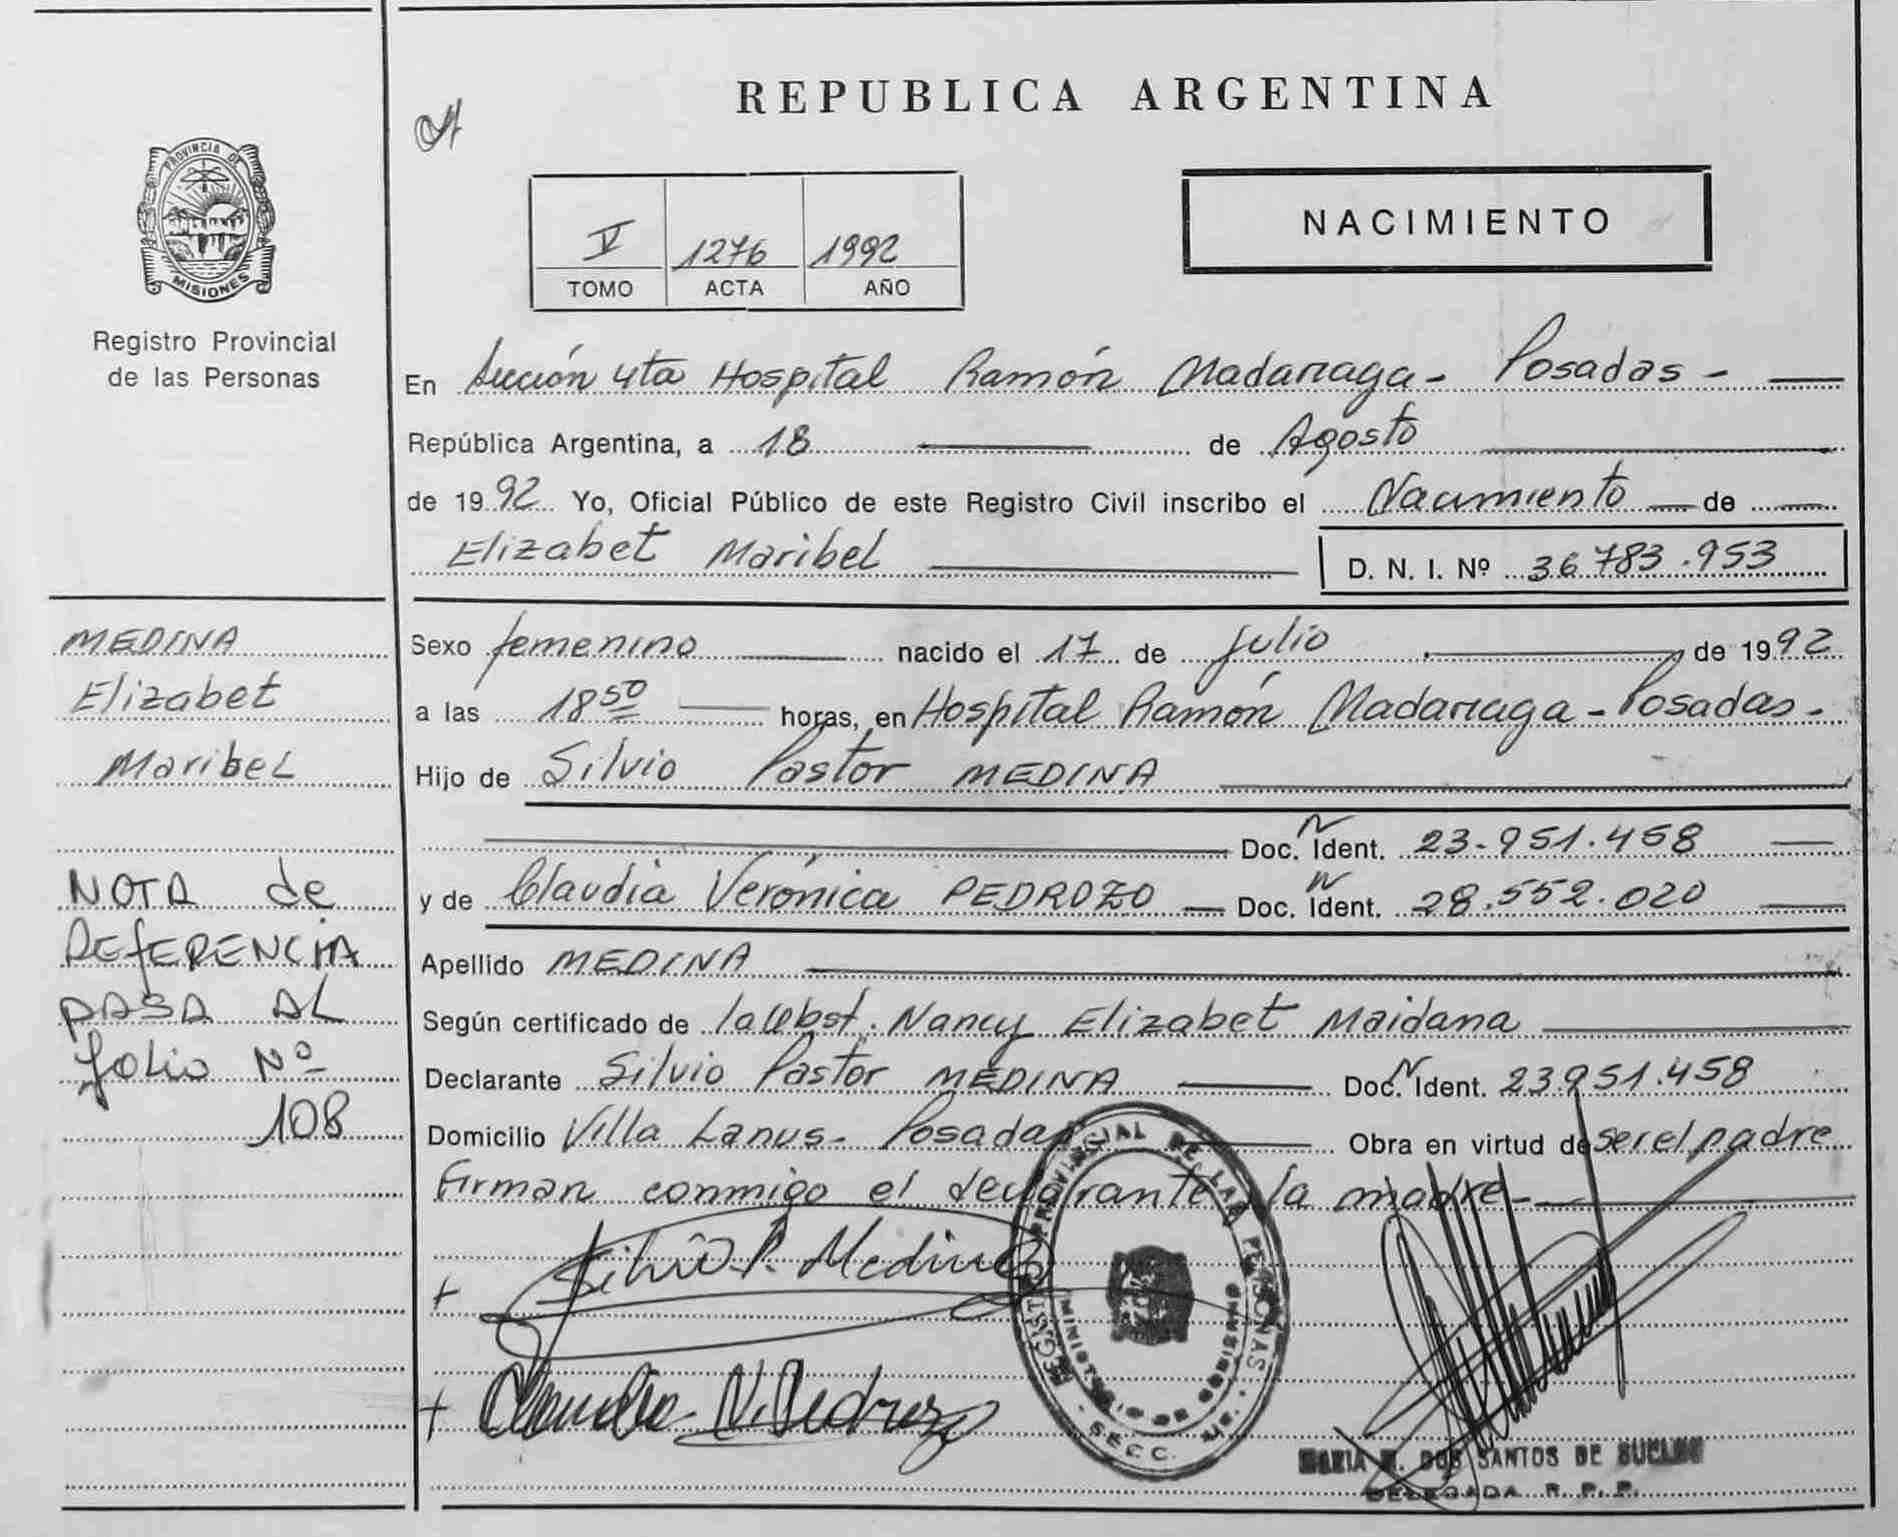 REPUBLICA ARGENTINA
PROVINCIA DE
MISIONES
Registro Provincial
de las Personas
V 1276 1992
TOMO ACTA AÑO
NACIMIENTO
En Sección 4ta Hospital Ramón Madariaga - Posadas -
República Argentina, a 18 de Agosto
de 1992 Yo, Oficial Público de este Registro Civil inscribo el Nacimiento de
Elizabet Maribel
D. N. I. Nº 36.783.953
MEDINA
Elizabet
Maribel
NOTA de
REfERENCIA
PASA AL
folio Nº
108
Sexo femenino nacido el 17 de Julio de 1992
a las 18 50 horas, en Hospital Ramón Madariaga - Posadas -
Hijo de Silvio Pastor MEDINA
Doc. N Ident. 23.951.458
y de Claudia Verónica PEDROZO Doc. N Ident. 28.552.020
Apellido MEDINA
Según certificado de la Obst. Nancy Elizabet Maidana
Declarante Silvio Pastor MEDINA Doc. N Ident. 23.951.458
Domicilio Villa Lanus - Posadas Obra en virtud de ser el padre
Firman conmigo el declarante y la madre -
+ Silvio P. Medina
+ Claudia V. Pedrozo
REGISTRO PROVINCIAL DE LAS PERSONAS
MINISTERIO DE GOBIERNO
SECC.
MARIA DOS SANTOS DE
DELEGADA R. P. P.